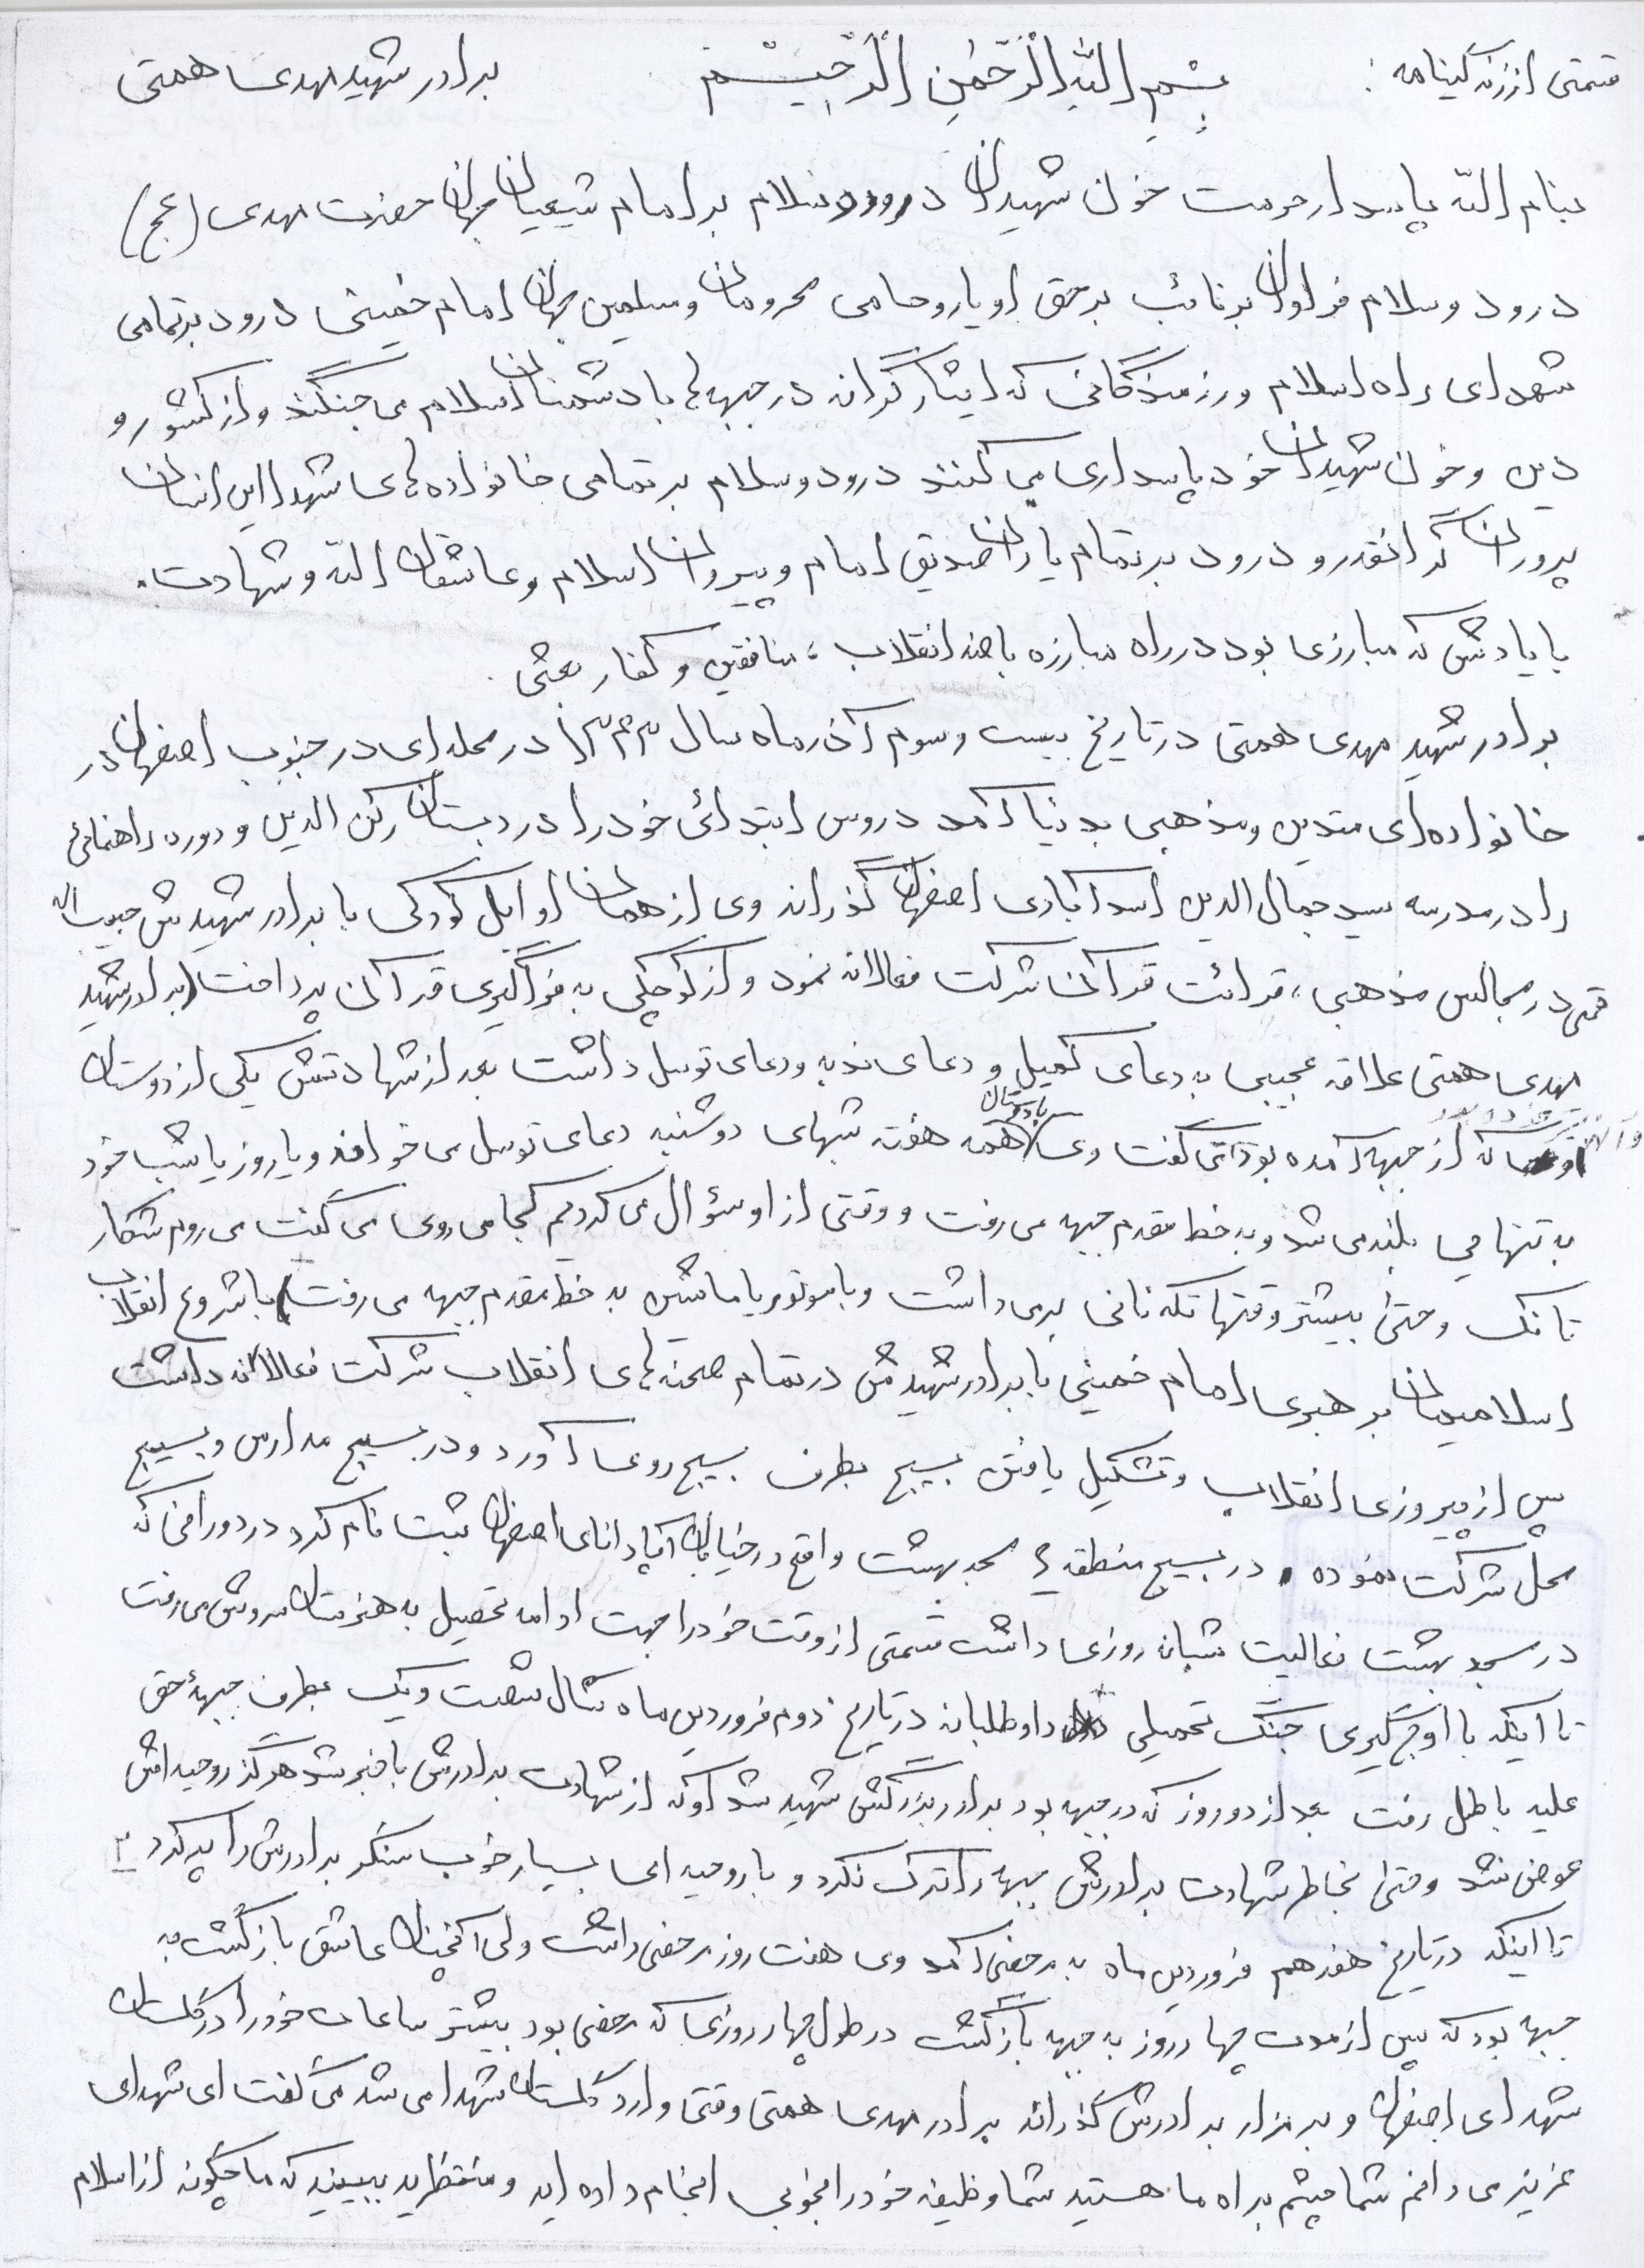 قسمتی از زندگینامه : بِسْمِ اللهِ الرَّحْمٰنِ الرَّحیٖم برادر شهید مهدی همتی
بنام الله پاسدار حرمت خون شهیدان درود و سلام بر امام شیعیان جهان حضرت مهدی (عج)
درود و سلام فراوان بر نائب بر حق او یار و حامی محرومان و مسلمین جهان امام خمینی درود بر تمامی
شهدای راه اسلام و رزمندگانی که ایثارگرانه در جبهه ها با دشمنان اسلام می جنگند و از کشور و
دین و خون شهیدان خود پاسداری می کنند درود و سلام بر تمامی خانواده های شهدا این انسان
پروران گرانقدر و درود بر تمام یاران صدیق امام و پیروان اسلام و عاشقان الله و شهادت.
با یادش که مبارزی بود در راه مبارزه با ضد انقلاب ، منافقین و کفار بعثی .
برادر شهید مهدی همتی در تاریخ بیست و سوم آذر ماه سال ۱۳۴۳ در محله ای در جنوب اصفهان در
خانواده ای متدین و مذهبی بدنیا آمد دروس ابتدائی خود را در دبستان رکن الدین و دوره راهنمائی
را در مدرسه سید جمال الدین اسدآبادی اصفهان گذراند وی از همان اوایل کودکی با برادر شهیدش حبیب اله
همتی در مجالس مذهبی ، قرائت قرآن شرکت فعالانه نمود و از کوچکی به فراگیری قرآن پرداخت (برادر شهید
مهدی همتی علاقه عجیبی به دعای کمیل و دعای ندبه و دعای توسل داشت بعد از شهادتش یکی از دوستان
که از جبهه آمده بود می گفت وی با دوستان همه هفته شبهای دوشنبه دعای توسل می خواند و یا روز یا شب خود
به تنهایی بلند می شد و به خط مقدم جبهه می رفت و وقتی از او سؤال می کردیم کجا می روی می گفت می روم شکار
تانک و حتی بیشتر وقتها تکه نانی برمی داشت و با موتور یا ماشین به خط مقدم جبهه می رفت) با شروع انقلاب
اسلامیمان برهبری امام خمینی با برادر شهیدش در تمام صحنه های انقلاب شرکت فعالانه داشت
پس از پیروزی انقلاب و تشکیل یافتن بسیج بطرف بسیج روی آورد و در بسیج مدارس و بسیج
محل شرکت نموده ، در بسیج منطقه ۶ مسجد بهشت واقع در خیابان آپادانای اصفهان ثبت نام کرد در دورانی که
در مسجد بهشت فعالیت شبانه روزی داشت قسمتی از وقت خود را جهت ادامه تحصیل به هنرستان سروش می رفت
تا اینکه با اوج گیری جنگ تحمیلی داوطلبانه در تاریخ دوم فروردین ماه سال شصت و یک بطرف جبههٔ حق
علیه باطل رفت بعد از دو روز که در جبهه بود برادر بزرگش شهید شد او که از شهادت برادرش باخبر شد هرگز روحیه اش
عوض نشد و حتی بخاطر شهادت برادرش جبهه را ترک نکرد و با روحیه ای بسیار خوب سنگر برادرش را پر کرد
تا اینکه در تاریخ هفدهم فروردین ماه به مرخصی آمد وی هفت روز مرخصی داشت ولی آنچنان عاشق بازگشت به
جبهه بود که پس از مدت چهار روز به جبهه بازگشت در طول چهار روزی که مرخصی بود بیشتر ساعات خود را در گلستان
شهدای اصفهان و بر مزار برادرش گذراند برادر مهدی همتی وقتی وارد گلستان شهدا می شد می گفت ای شهدای
عزیز می دانم شما چشم براه ما هستید شما وظیفه خود را بخوبی انجام داده اید و منتظرید ببینید که ما چگونه از اسلام